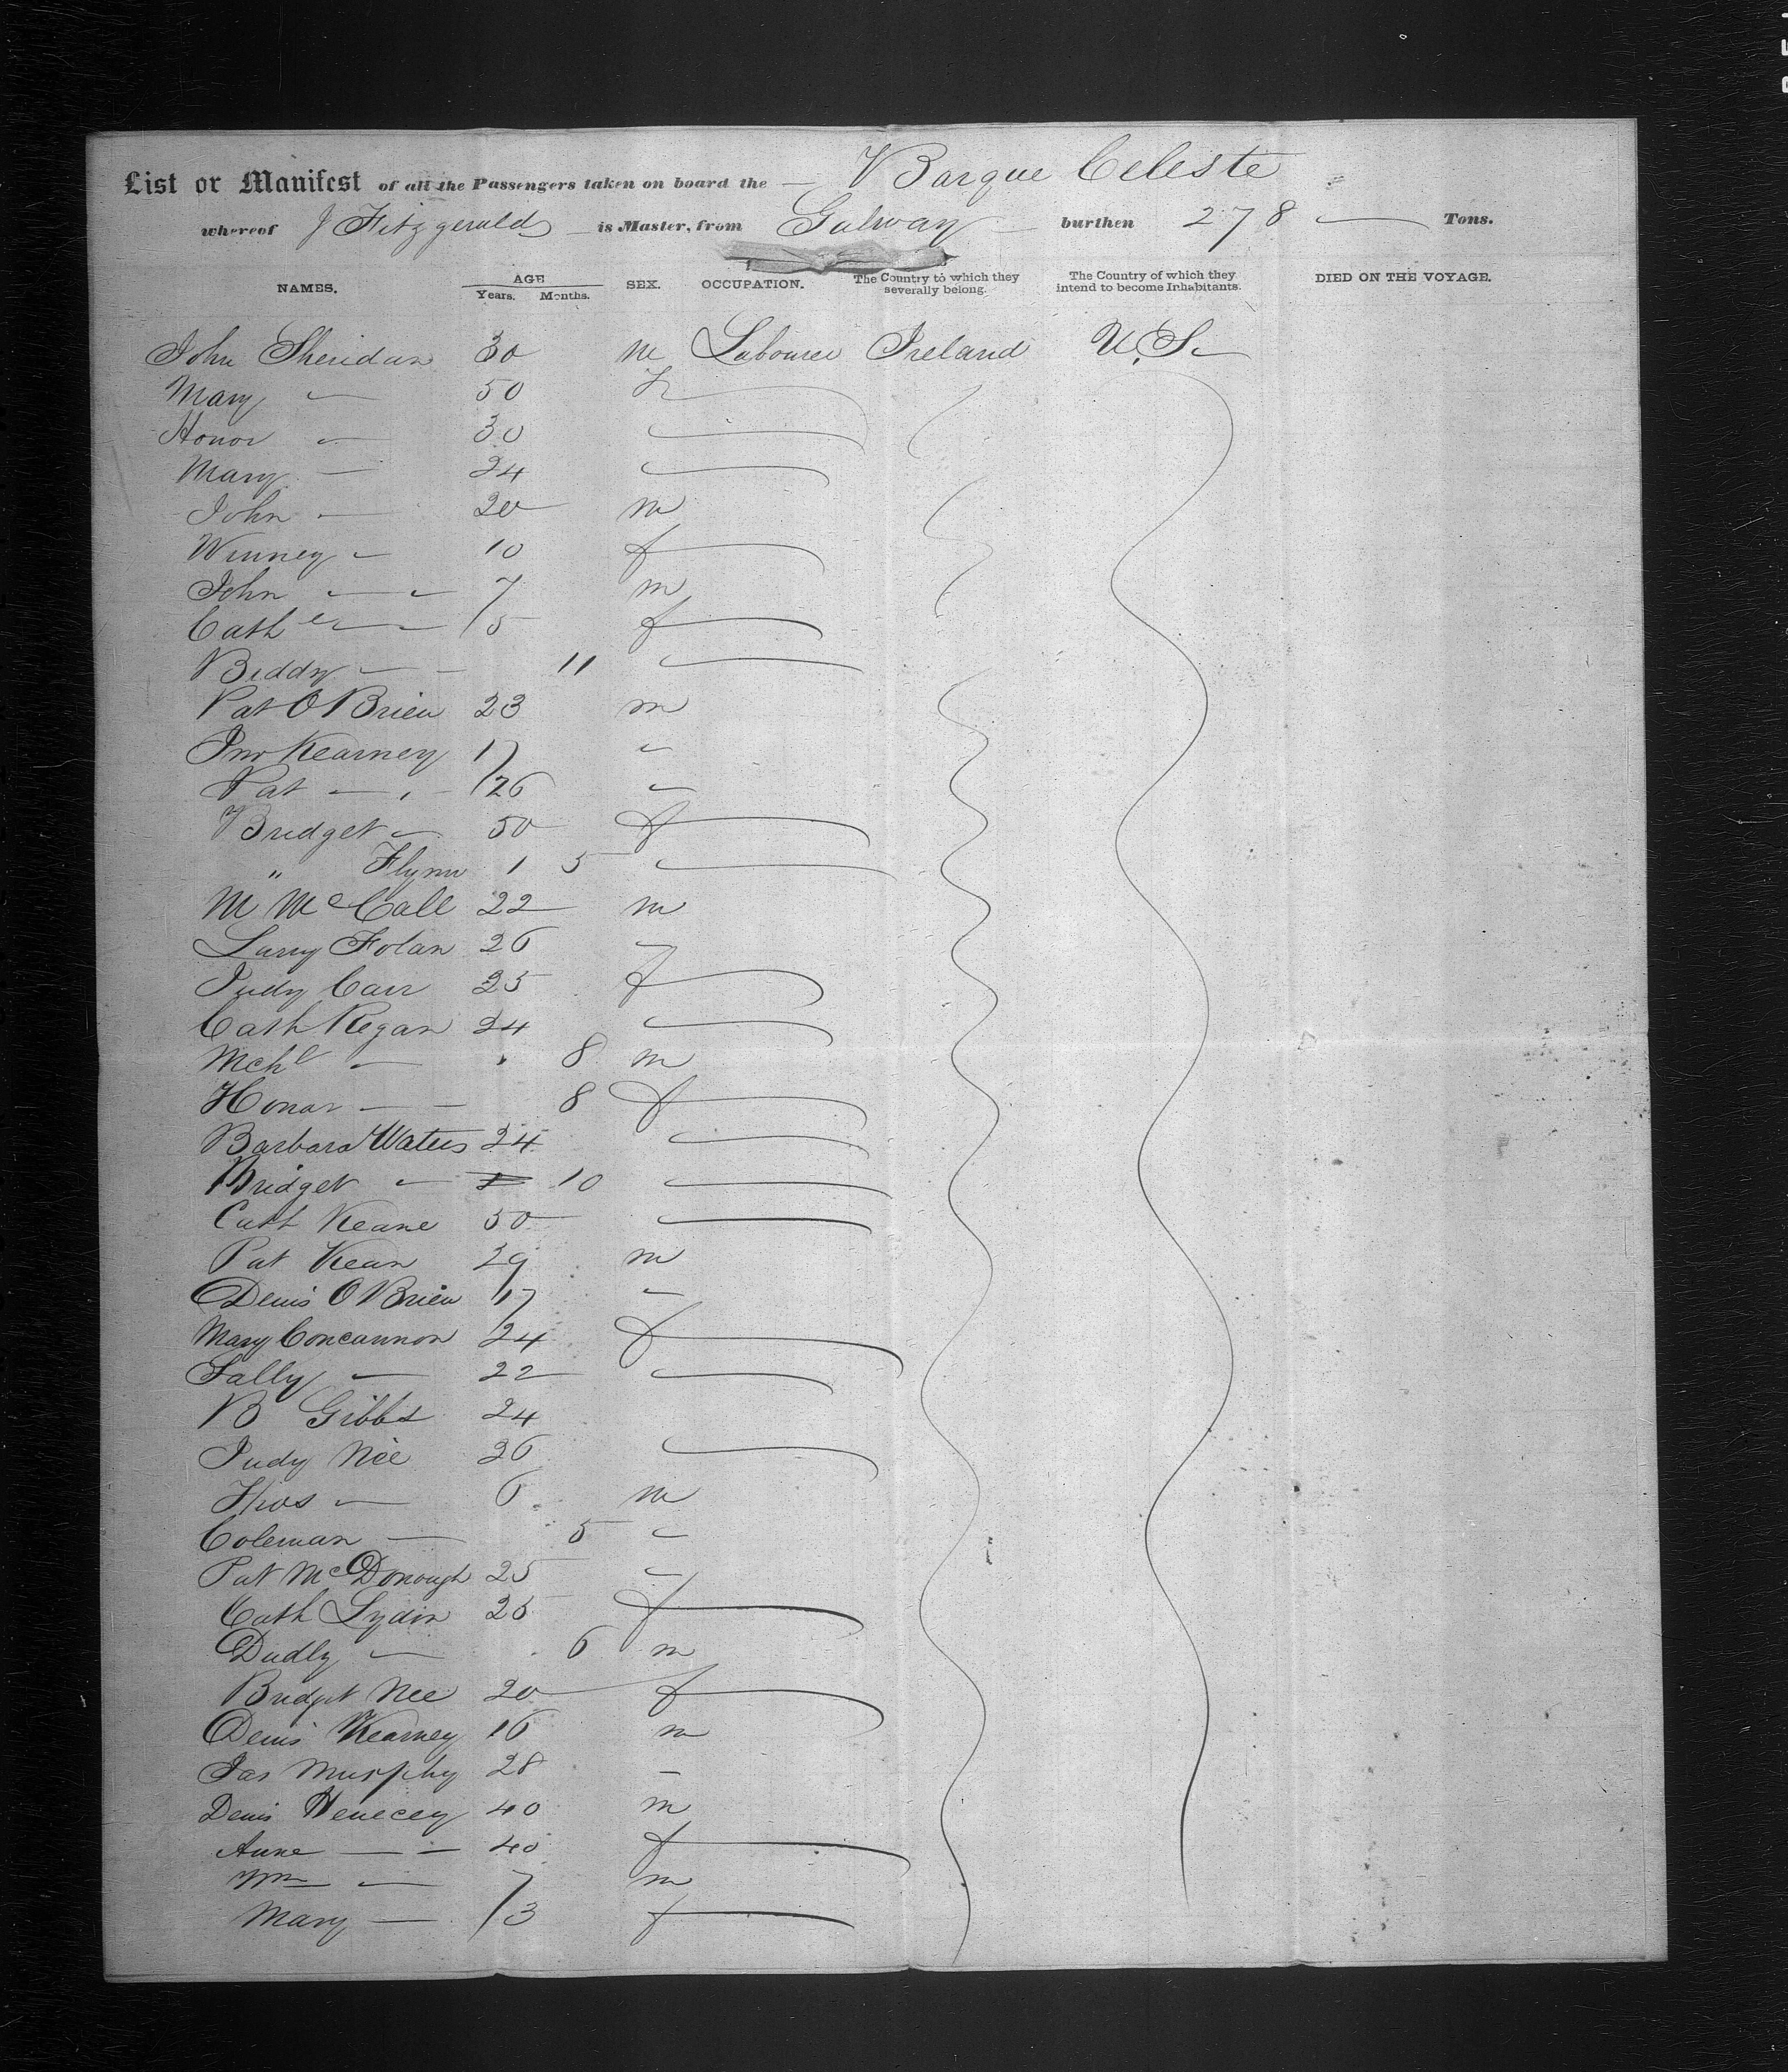 List or Manifest of all the Passengers taken on board the — Barque Celeste
whereof J Fitzgerald is Master, from Galway burthen 278 — Tons.
NAMES. AGE Years. Months. SEX. OCCUPATION. The Country to which they severally belong. The Country of which they intend to become Inhabitants. DIED ON THE VOYAGE.
John Sheridan 30 m Labourer Ireland U.S.
Mary — 50 f
Honor — 30
Mary — 24
John — 20 m
Winney — 10 f
John — 7 m
Cath — 5 f
Biddy — 11
Pat O Brien 23 m
Jno Kearney 17
Pat — 26
Bridget — 50 f
" Flynn 1 5
M McCall 22 m
Larry Folan 26
Judy Carr 25 f
Cath Regan 24
Mchl — 8 m
Honor — 8 f
Barbara Waters 24
Bridget — 10
Cath Keane 50
Pat Kean 29 m
Denis O Brien 17
Mary Concannon 24 f
Sally — 22
B Gibbs 24
Judy Nee 26
Thos — 6 m
Coleman — 5
Pat McDonough 25
Cath Lydin 25 f
Dudly — 6 m
Bridget Nee 20 f
Denis Kearney 16 m
Jas Murphy 28
Denis 40 m
Anne — 40 f
Wm — 7 m
Mary — 3 f